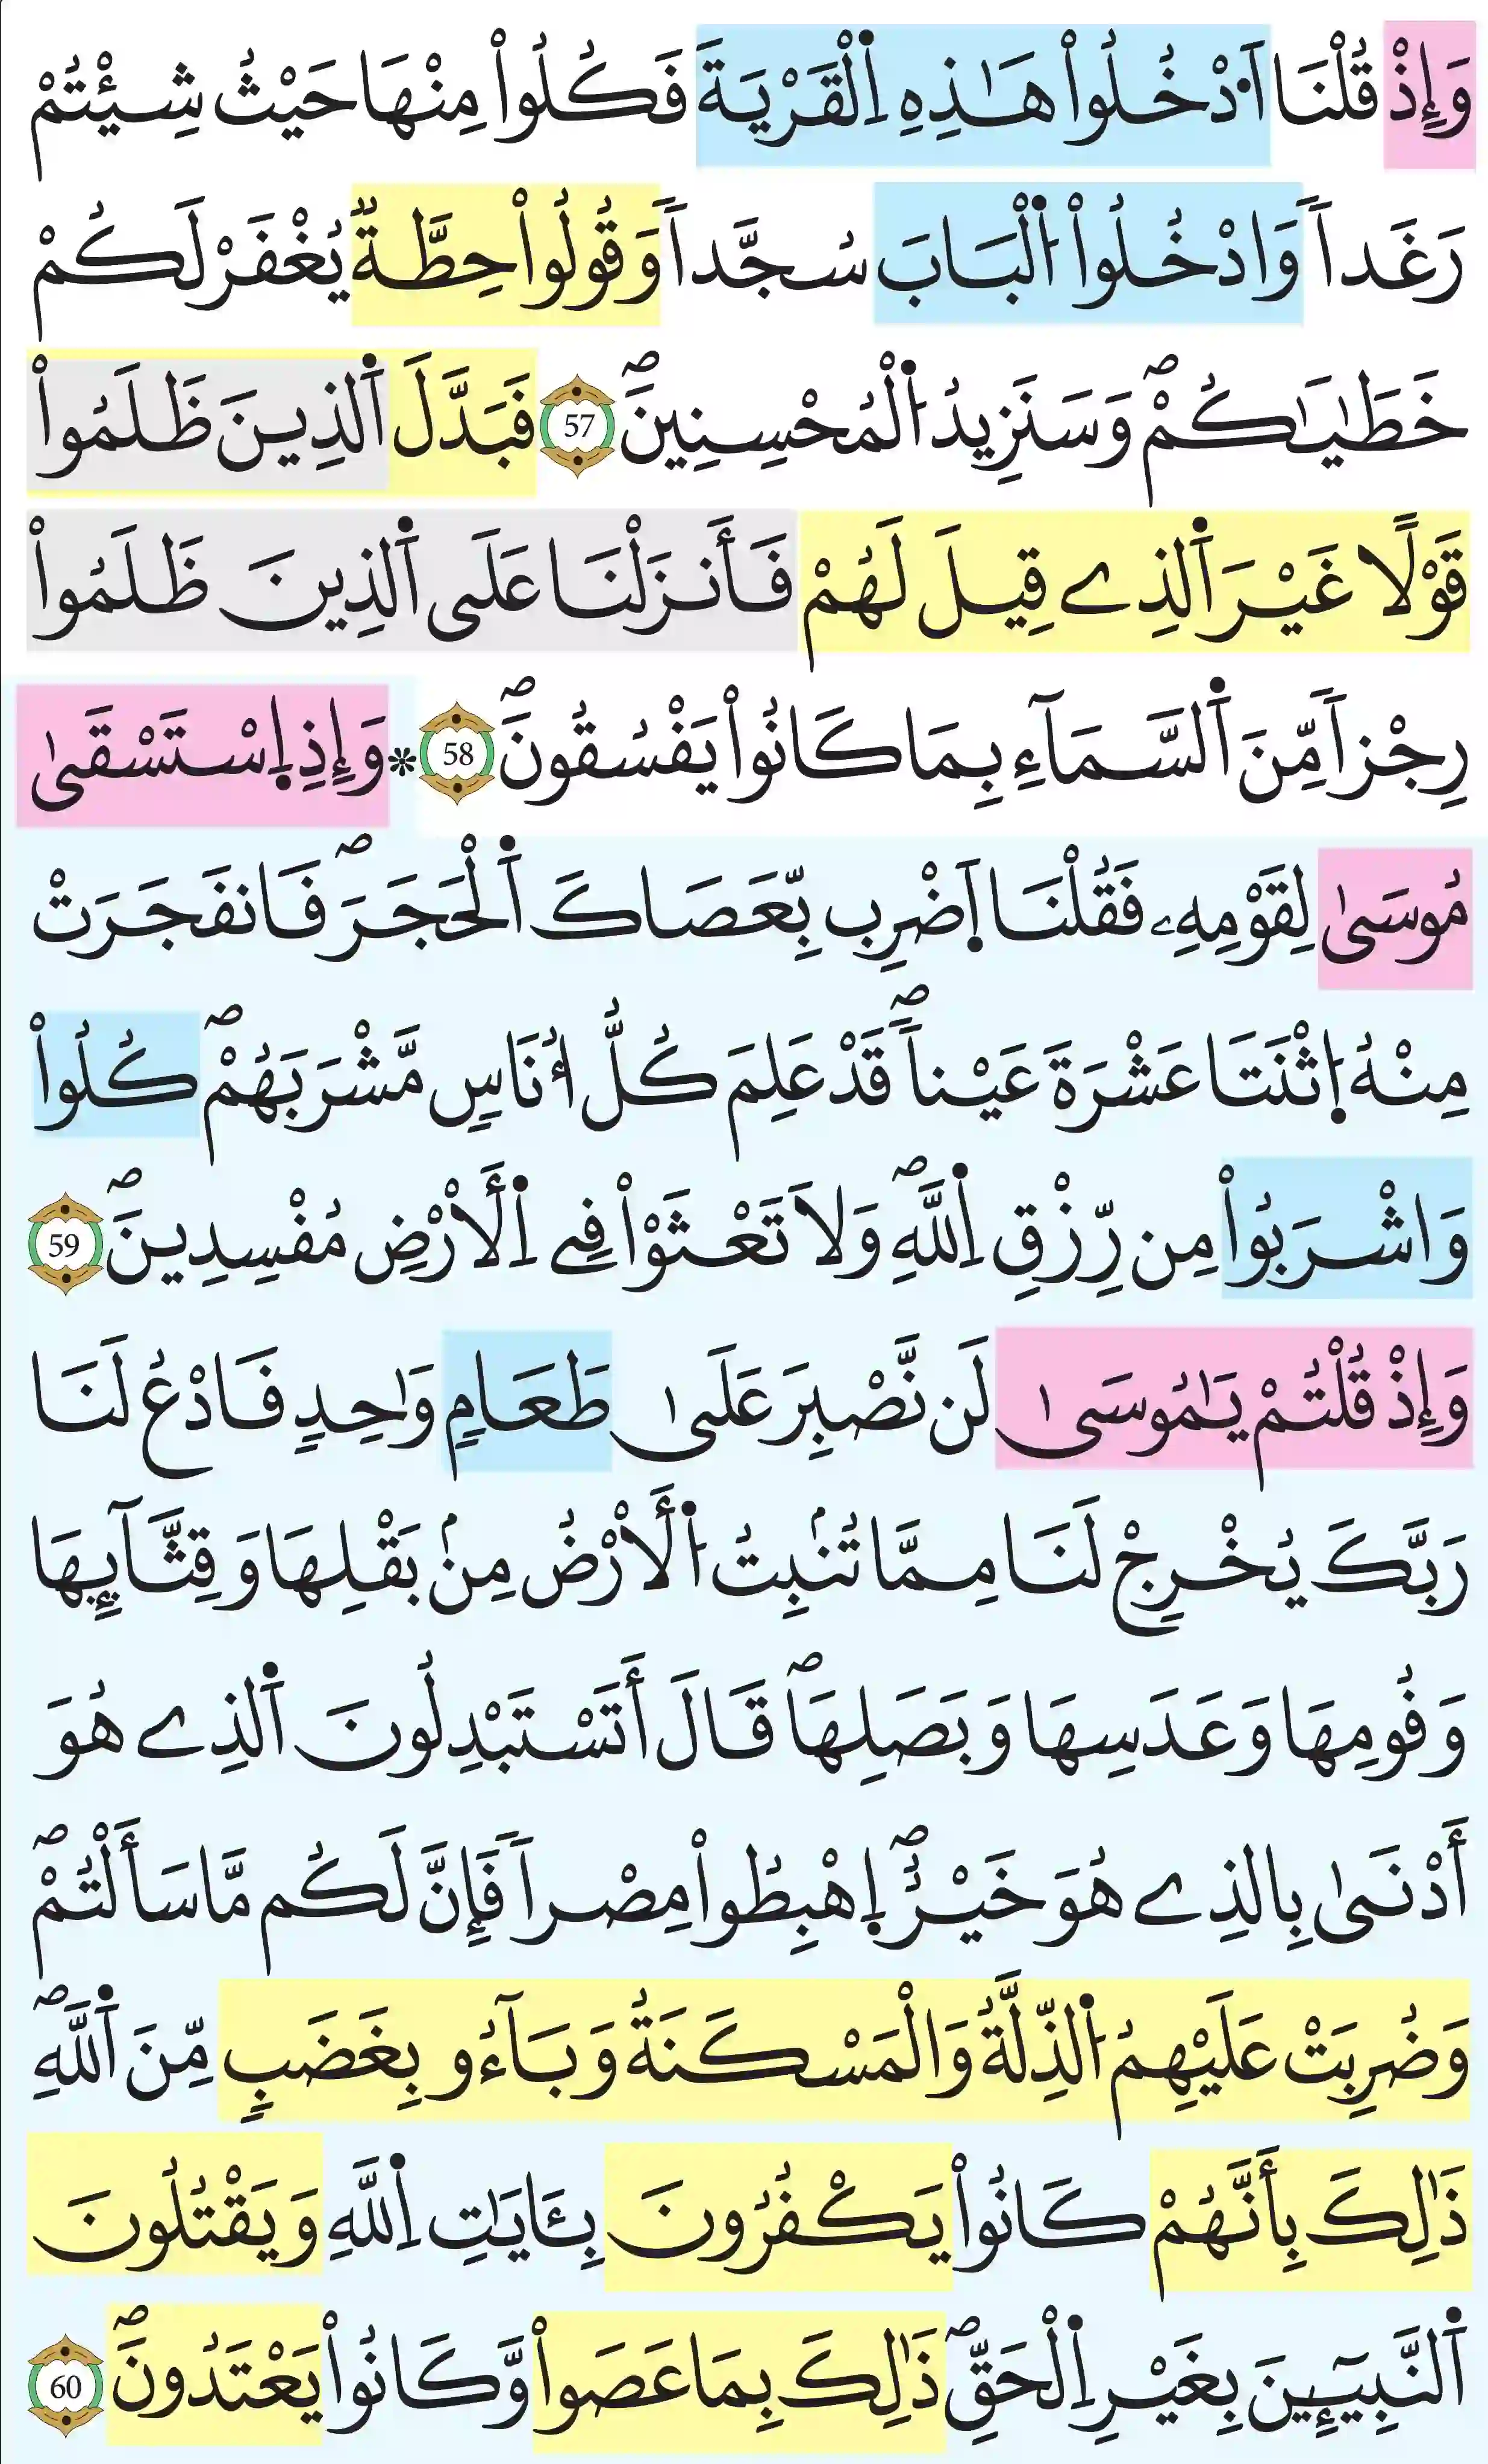 وَإِذْ قُلْنَا اَ۟دْخُلُواْ هَٰذِهِ اِ۬لْقَرْيَةَ فَكُلُواْ مِنْهَا حَيْثُ شِئْتُمْ
رَغَداٗ وَادْخُلُواْ اُ۬لْبَابَ سُجَّداٗ وَقُولُواْ حِطَّةٞ يُغْفَرْ لَكُمْ
خَطَٰيَٰكُمْۖ وَسَنَزِيدُ اُ۬لْمُحْسِنِينَۖ 57 فَبَدَّلَ اَ۬لذِينَ ظَلَمُواْ
قَوْلًا غَيْرَ اَ۬لذِے قِيلَ لَهُمْ فَأَنزَلْنَا عَلَى اَ۬لذِينَ ظَلَمُواْ
رِجْزاٗ مِّنَ اَ۬لسَّمَآءِ بِمَا كَانُواْ يَفْسُقُونَۖ 58 ❊ وَإِذِ اِ۪سْتَسْقَىٰ
مُوسَىٰ لِقَوْمِهِۦ فَقُلْنَا اَ۪ضْرِب بِّعَصَاكَ اَ۬لْحَجَرَۖ فَانفَجَرَتْ
مِنْهُ اُ۪ثْنَتَا عَشْرَةَ عَيْناٗۖ قَدْ عَلِمَ كُلُّ أُنَاسٖ مَّشْرَبَهُمْۖ كُلُواْ
وَاشْرَبُواْ مِن رِّزْقِ اِ۬للَّهِۖ وَلَا تَعْثَوْاْ فِے اِ۬لَارْضِ مُفْسِدِينَۖ 59
وَإِذْ قُلْتُمْ يَٰمُوسَىٰ لَن نَّصْبِرَ عَلَىٰ طَعَامٖ وَٰحِدٖ فَادْعُ لَنَا
رَبَّكَ يُخْرِجْ لَنَا مِمَّا تُنۢبِتُ اُ۬لَارْضُ مِنۢ بَقْلِهَا وَقِثَّآئِهَا
وَفُومِهَا وَعَدَسِهَا وَبَصَلِهَاۖ قَالَ أَتَسْتَبْدِلُونَ اَ۬لذِے هُوَ
أَدْنَىٰ بِالذِے هُوَ خَيْرٌۖ اِ۪هْبِطُواْ مِصْراٗ فَإِنَّ لَكُم مَّا سَأَلْتُمْۖ
وَضُرِبَتْ عَلَيْهِمُ اُ۬لذِّلَّةُ وَالْمَسْكَنَةُ وَبَآءُو بِغَضَبٖ مِّنَ اَ۬للَّهِۖ
ذَٰلِكَ بِأَنَّهُمْ كَانُواْ يَكْفُرُونَ بِـَٔايَٰتِ اِ۬للَّهِ وَيَقْتُلُونَ
اَ۬لنَّبِيٓـِٕينَ بِغَيْرِ اِ۬لْحَقِّۖ ذَٰلِكَ بِمَا عَصَواْ وَّكَانُواْ يَعْتَدُونَۖ 60